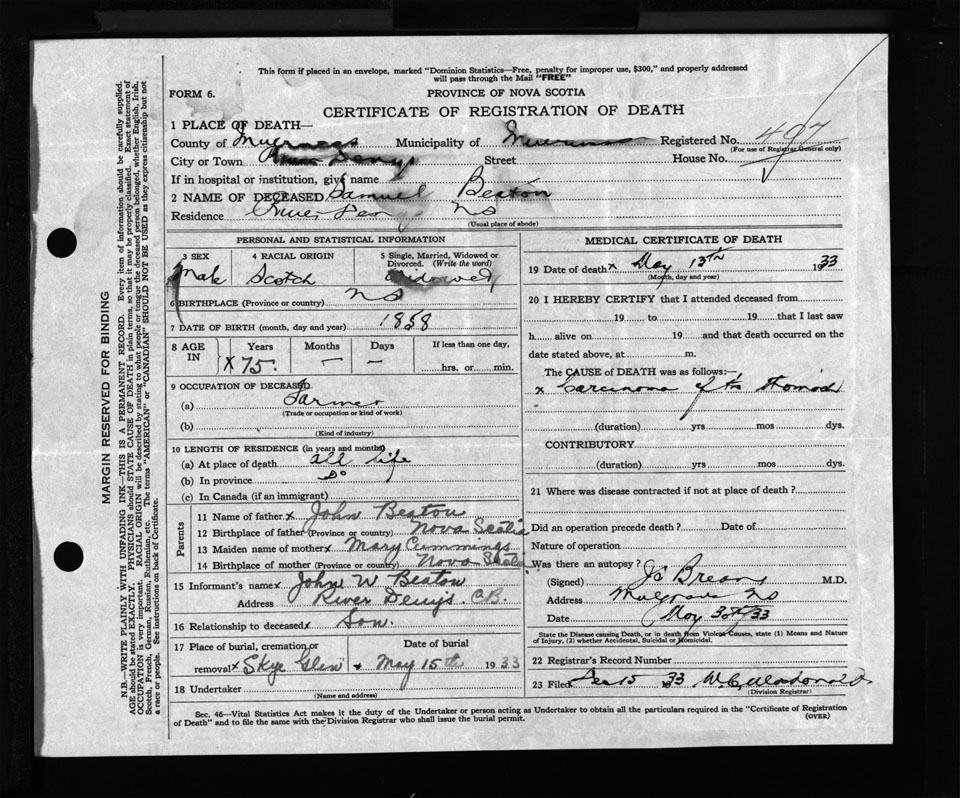 This form if placed in an envelope, marked "Dominion Statistics—Free, penalty for improper use, $300," and properly addressed
will pass through the Mail "FREE"
FORM 6.
PROVINCE OF NOVA SCOTIA
CERTIFICATE OF REGISTRATION OF DEATH
1 PLACE OF DEATH—
County of Inverness Municipality of Registered No. 497
(For use of Registrar General only)
City or Town Denys Street House No.
If in hospital or institution, give name
2 NAME OF DECEASED Samuel Beaton
Residence River Den NS
(Usual place of abode)
PERSONAL AND STATISTICAL INFORMATION
3 SEX 4 RACIAL ORIGIN 5 Single, Married, Widowed or
Divorced. (Write the word)
Male Scotch Widowed
6 BIRTHPLACE (Province or country) NS
7 DATE OF BIRTH (month, day and year) 1858
8 AGE IN Years Months Days If less than one day,
x 75 — — hrs. or min.
9 OCCUPATION OF DECEASED
(a) Farmer
(Trade or occupation or kind of work)
(b)
(Kind of industry)
10 LENGTH OF RESIDENCE (in years and months)
(a) At place of death all life
(b) In province Do
(c) In Canada (if an immigrant)
Parents
11 Name of father x John Beaton
12 Birthplace of father (Province or country) Nova Scotia
13 Maiden name of mother x Mary Cummings
14 Birthplace of mother (Province or country) Nova Scotia
15 Informant's name x John W Beaton
Address River Denys. C.B.
16 Relationship to deceased x Son.
17 Place of burial, cremation or Date of burial
removal x Skye Glen x May 15th 1933
18 Undertaker
(Name and address)
MEDICAL CERTIFICATE OF DEATH
19 Date of death x May 13th 1933
(Month, day and year)
20 I HEREBY CERTIFY that I attended deceased from
19 to 19 that I last saw
h alive on 19 and that death occurred on the
date stated above, at m.
The CAUSE of DEATH was as follows:—
x Carcinoma of the Stomach
(duration) yrs mos dys.
CONTRIBUTORY
(duration) yrs mos dys.
21 Where was disease contracted if not at place of death?
Did an operation precede death? Date of
Nature of operation
Was there an autopsy?
(Signed) M.D.
Address Mulgrave NS
Date May 30th 33
State the Disease causing Death, or in death from Violent Causes, state (1) Means and Nature
of Injury, (2) whether Accidental, Suicidal or Homicidal.
22 Registrar's Record Number
23 Filed Dec 15 1933 W. C. Macdonald
(Division Registrar)
Sec. 46—Vital Statistics Act makes it the duty of the Undertaker or person acting as Undertaker to obtain all the particulars required in the "Certificate of Registration
of Death" and to file the same with the Division Registrar who shall issue the burial permit.
(OVER)
MARGIN RESERVED FOR BINDING
N.B—WRITE PLAINLY WITH UNFADING INK—THIS IS A PERMANENT RECORD. Every item of information should be carefully supplied.
AGE should be stated EXACTLY. PHYSICIANS should STATE CAUSE OF DEATH in plain terms, so that it may be properly classified. Exact statement of
OCCUPATION is very important. RACIAL ORIGIN will be described by stating to what people or tongue the deceased person belonged, whether English, Irish,
Scotch, French, German, Russian, Ruthenian, etc. The terms "AMERICAN" or "CANADIAN" SHOULD NOT BE USED as they express citizenship but not
a race or people. See instructions on back of Certificate.